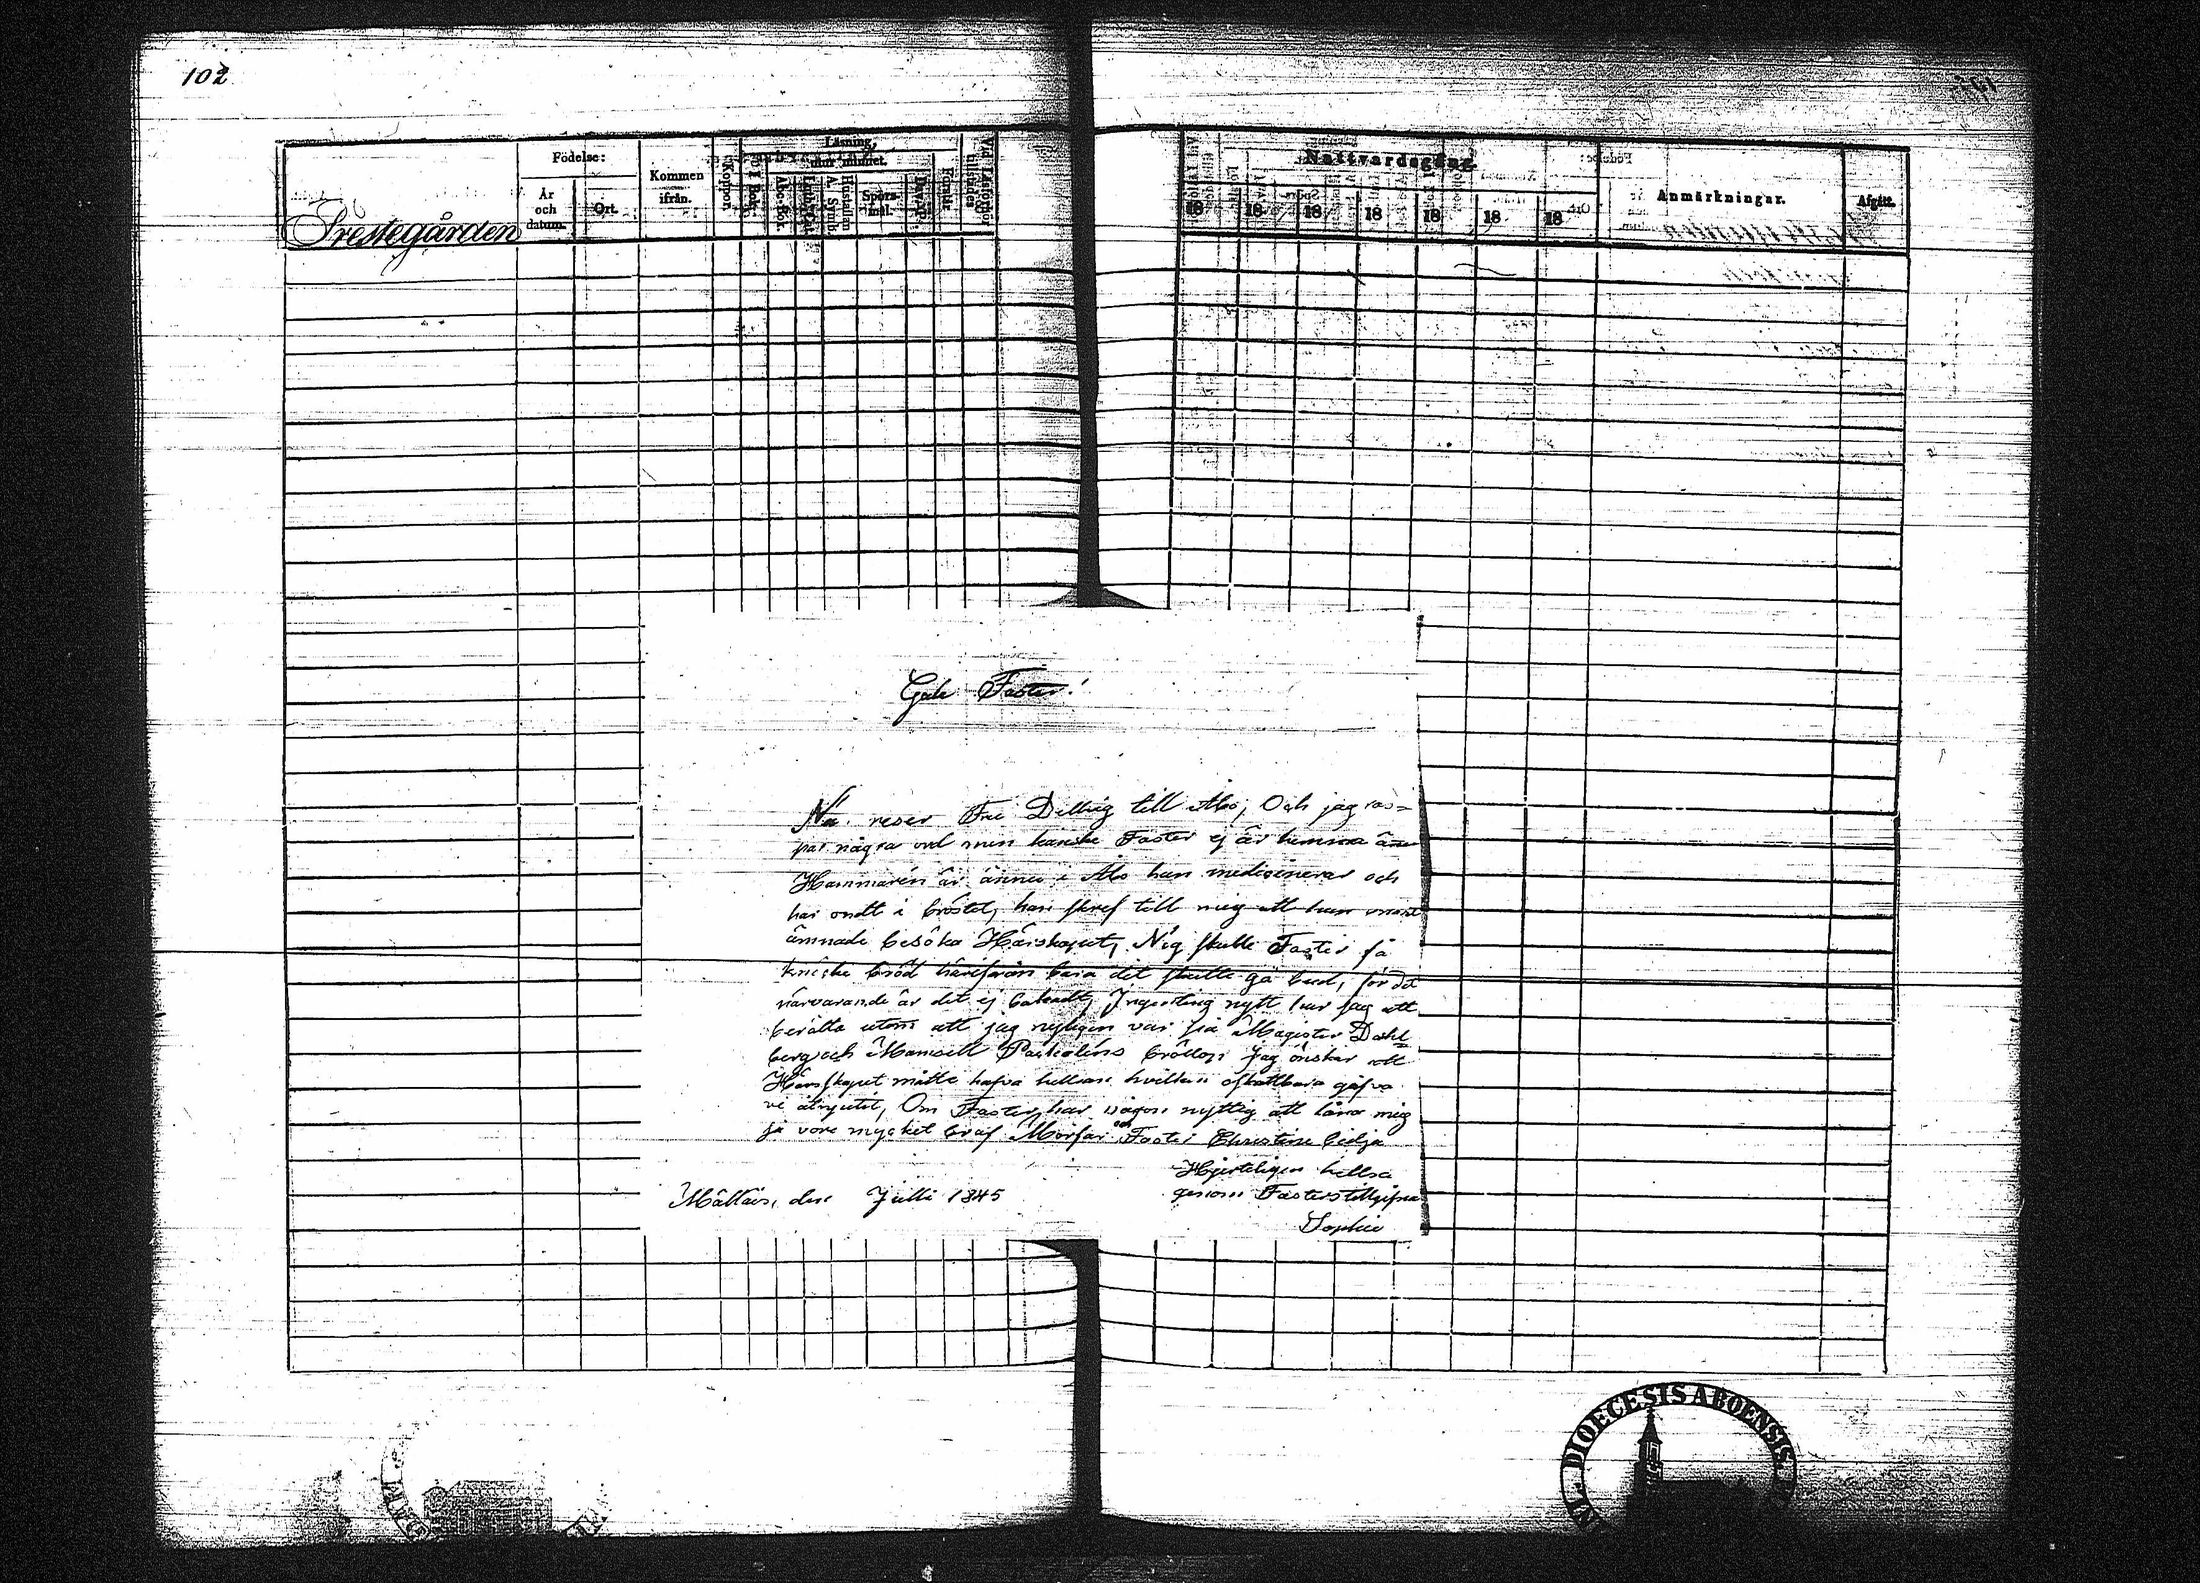 102
Prestegården
Födelse:
År och datum.
Ort.
Kommen ifrån.
Koppor.
Läsning,
I Bok.
Abc-Bok.
A. Symb.
Hustaflan
Spörsmål.
Nattvardsgång.
18 18 18 18 18 18 18
Anmärkningar.
Afgått.
Goda Faster!
Nu reser Fru Dellvig till Åbo, Och jag ras=
par några ord men kanske Faster ej är hemma ännu
Hammarén är ännu i Åbo han medicinerar och
har ondt i bröstet, han skref till mig att han snart
ämnade besöka Härskapet, Nog skulle Faster få
knäcke bröd härifrån bara det skulle gå bud, för det
närvarande är det ej bakadt, Ingenting nytt har jag att
berätta utom att jag nyligen var på Magister Dahl=
berg och Mamsell Paskalins bröllop Jag önskar att
Härskapet måtte hafva hellsan hvilken oskattbara gåfva
vi åtnjutit, Om Faster har någon nyttig att låna mig
så vore mycket bra Morfar och Faster Christine bedja
Hjerteligen hellsa
genom Fasters tillgifna
Sophie
den Julli 1845
DIOECESIS ABOENSIS